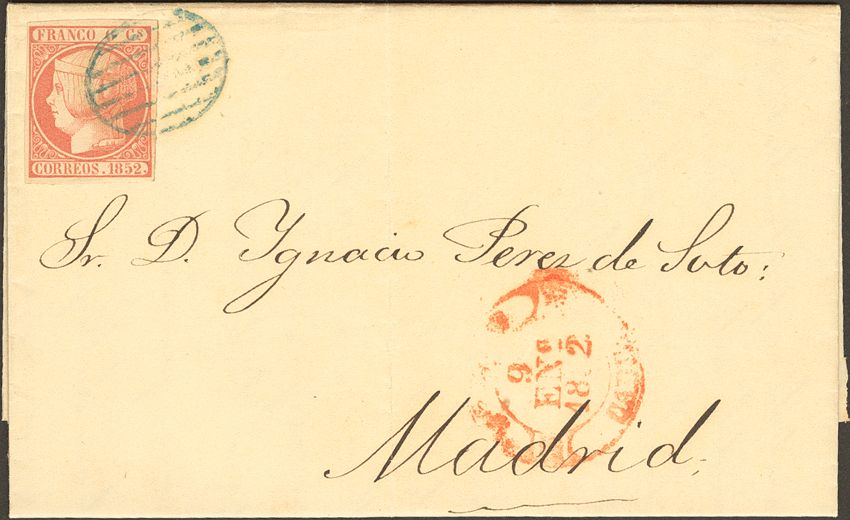 FRANCO Gs
CORREOS.1852.
Sr. D. Ygnacio Perez de Soto:
9
ENº
1852
Madrid.